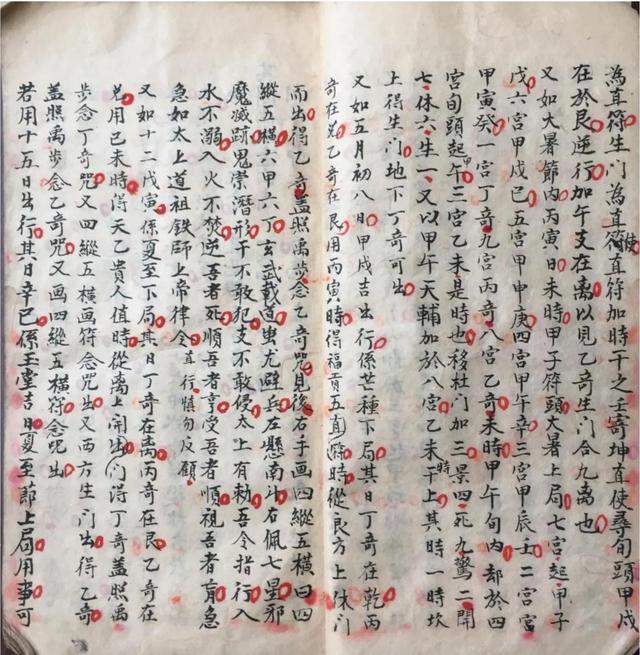 為直符生門為直符使加時干之壬奇坤直使尋旬頭甲戌
在於艮逆行加午支在离以見乙奇生门合九离也
又如大暑節内丙寅日未時甲子符頭大暑上局七宫起甲子
戊六宫甲戌己五宫甲申庚四宫甲午辛三宫甲辰壬二宫
甲寅癸一宫丁奇九宫丙奇八宫乙奇未時甲午旬内却於四
宫旬頭起甲午三宫乙未是時也移杜门加三景四死九驚二開
七休六生一又以甲午天輔加於八宫乙未干上其時一時坎
上得生门地下丁奇可出
又如五月初八日甲戌吉出行係芒種下局其日丁奇在乾丙
奇在兑乙奇在艮用丙寅時得福貢五直游時從艮方上休门
而出得乙奇蓋照禹步念乙奇咒見後右手画四縱五横曰四
縱五横六甲六丁玄武載道蚩尤避兵左懸南斗右佩七星邪
魔滅跡鬼祟潛形干不敢犯支不敢侵太上有勅吾令指行入
水不溺入火不焚逆吾者死順吾者亨受吾者順視吾者盲急
急如太上道祖铁師上帝律令直行慎勿反顧
又如十二戊寅係夏至下局其日丁奇在离丙奇在艮乙奇在
兑用已未時得天乙貴人值時從离上開出门得丁奇蓋照禹
步念丁奇咒又四縱五横画符念咒出又西方生门出得乙奇
蓋照禹步念乙奇咒又画四縱五横符念咒出
若用十五日出行其日辛巳係玉堂吉日夏至節上局用事可